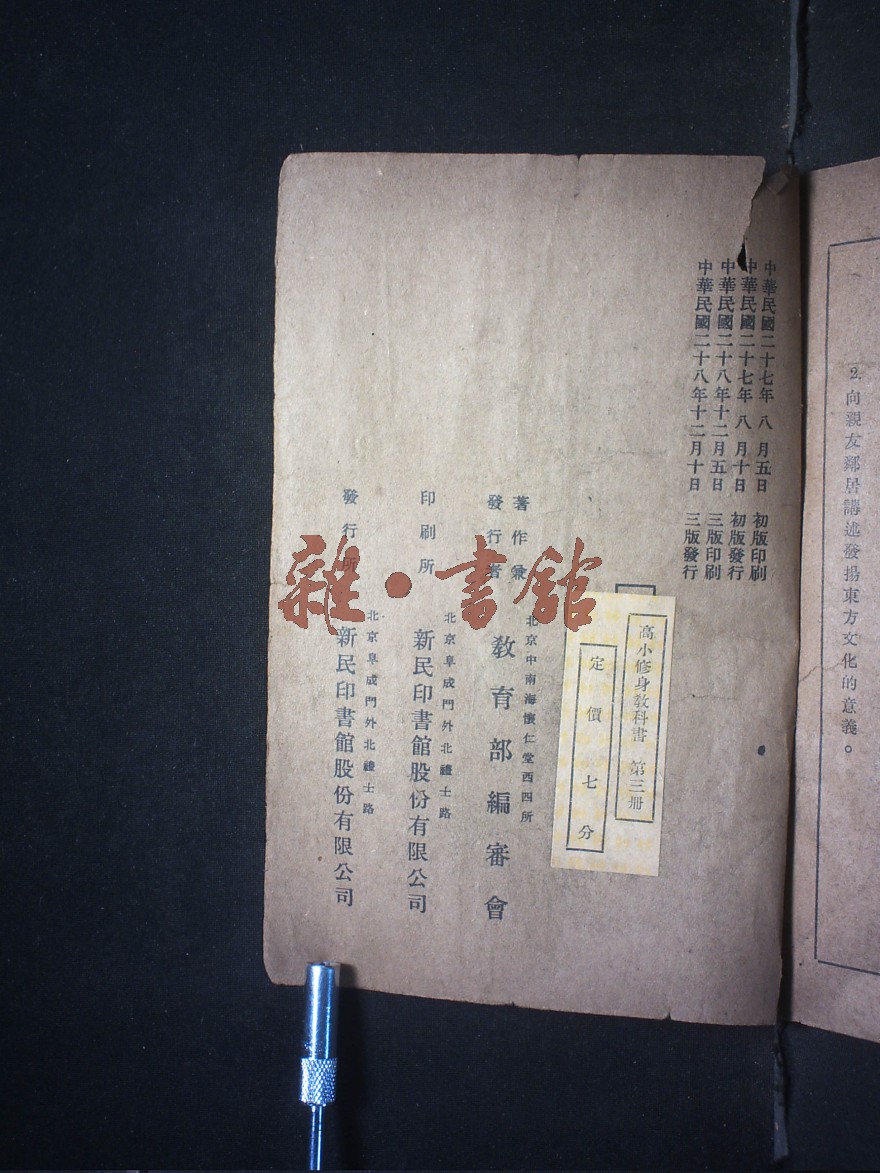 2. 向親友鄰居講述發揚東方文化的意義。
中華民國二十七年 八 月五日 初版印刷
中華民國二十七年 八 月十日 初版發行
中華民國二十八年十二月五日 三版印刷
中華民國二十八年十二月十日 三版發行
高小修身教科書 第三冊
定價七分
著作兼
發行者
北京中南海懷仁堂西四所
教育部編審會
印刷所
北京阜成門外北禮士路
新民印書館股份有限公司
發行所
北京阜成門外北禮士路
新民印書館股份有限公司
雜·書館